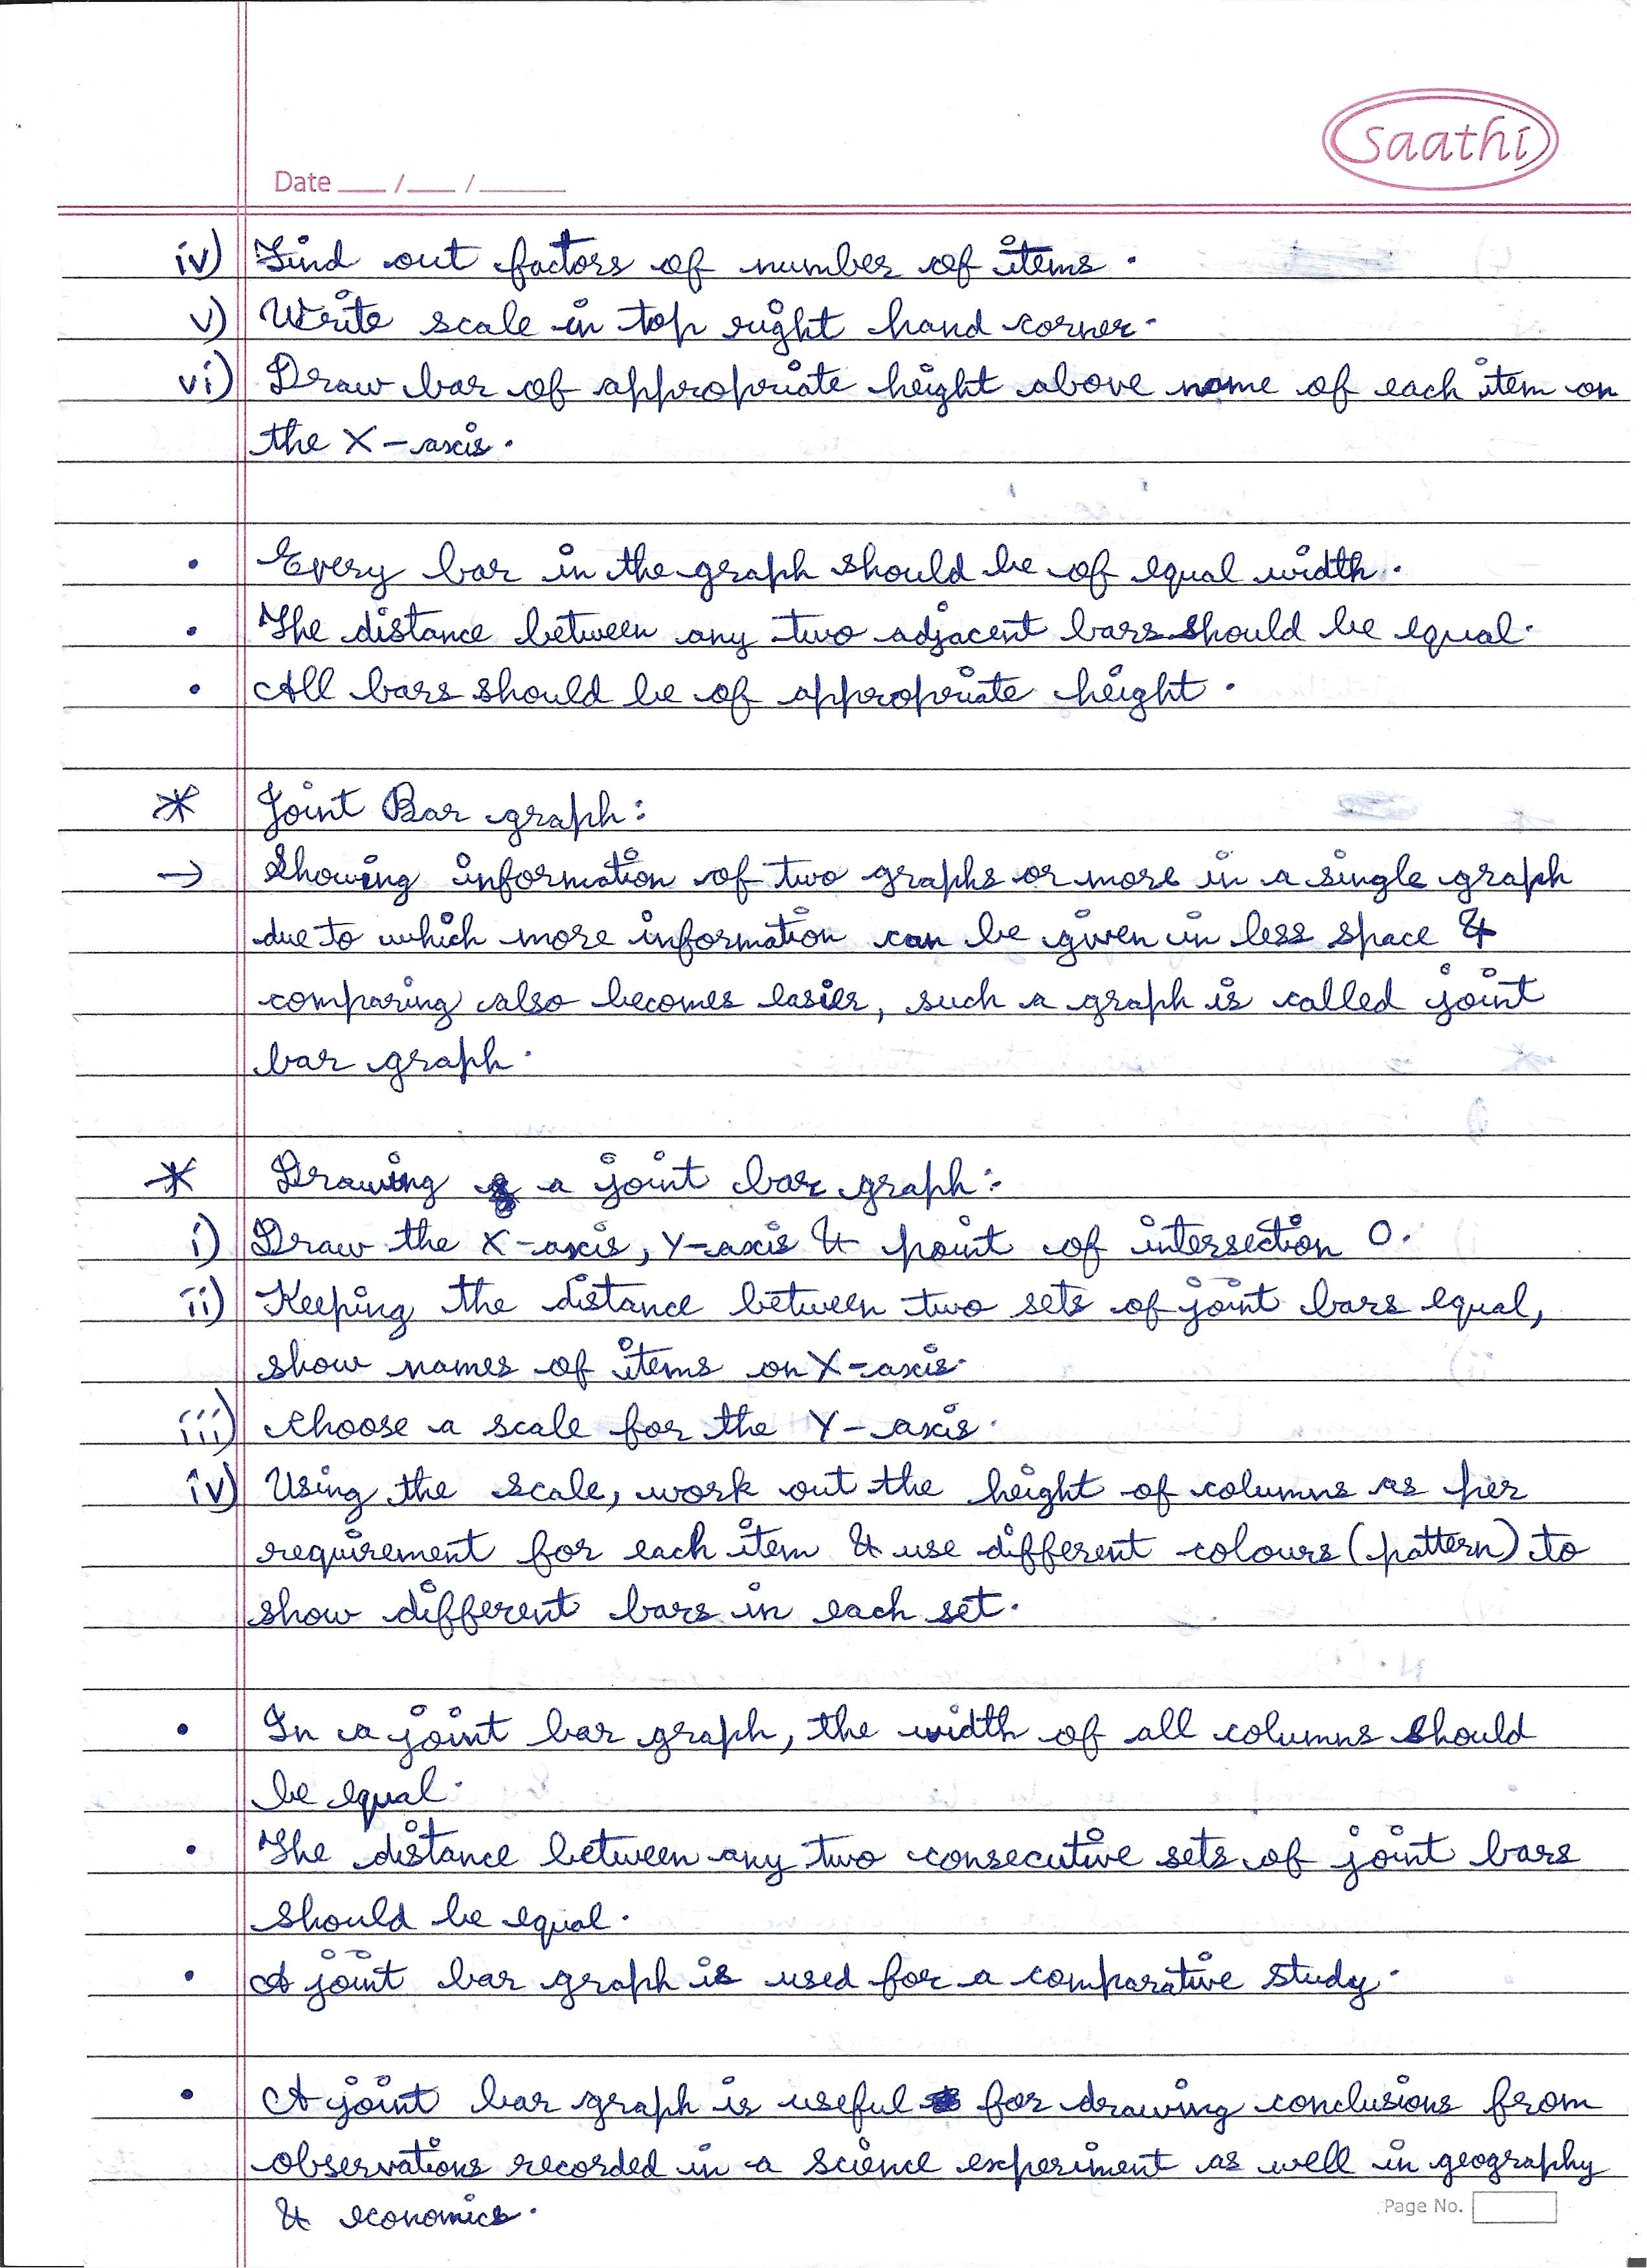 saathi
Date __/__/____
iv) Find out factors of number of items.
v) Write scale in top right hand corner.
vi) Draw bar of appropriate height above name of each item on
the X-axis.
• Every bar in the graph should be of equal width.
• The distance between any two adjacent bars should be equal.
• All bars should be of appropriate height.
* Joint Bar graph:
→ Showing information of two graphs or more in a single graph
due to which more information can be given in less space &
comparing also becomes easier, such a graph is called joint
bar graph.
* Drawing a joint bar graph:
i) Draw the X-axis, Y-axis & point of intersection O.
ii) Keeping the distance between two sets of joint bars equal,
show names of items on X-axis.
iii) Choose a scale for the Y-axis.
iv) Using the scale, work out the height of columns as per
requirement for each item & use different colours (pattern) to
show different bars in each set.
• In a joint bar graph, the width of all columns should
be equal.
• The distance between any two consecutive sets of joint bars
should be equal.
• A joint bar graph is used for a comparative study.
• A joint bar graph is useful for drawing conclusions from
observations recorded in a science experiment as well in geography
& economics.
Page No.